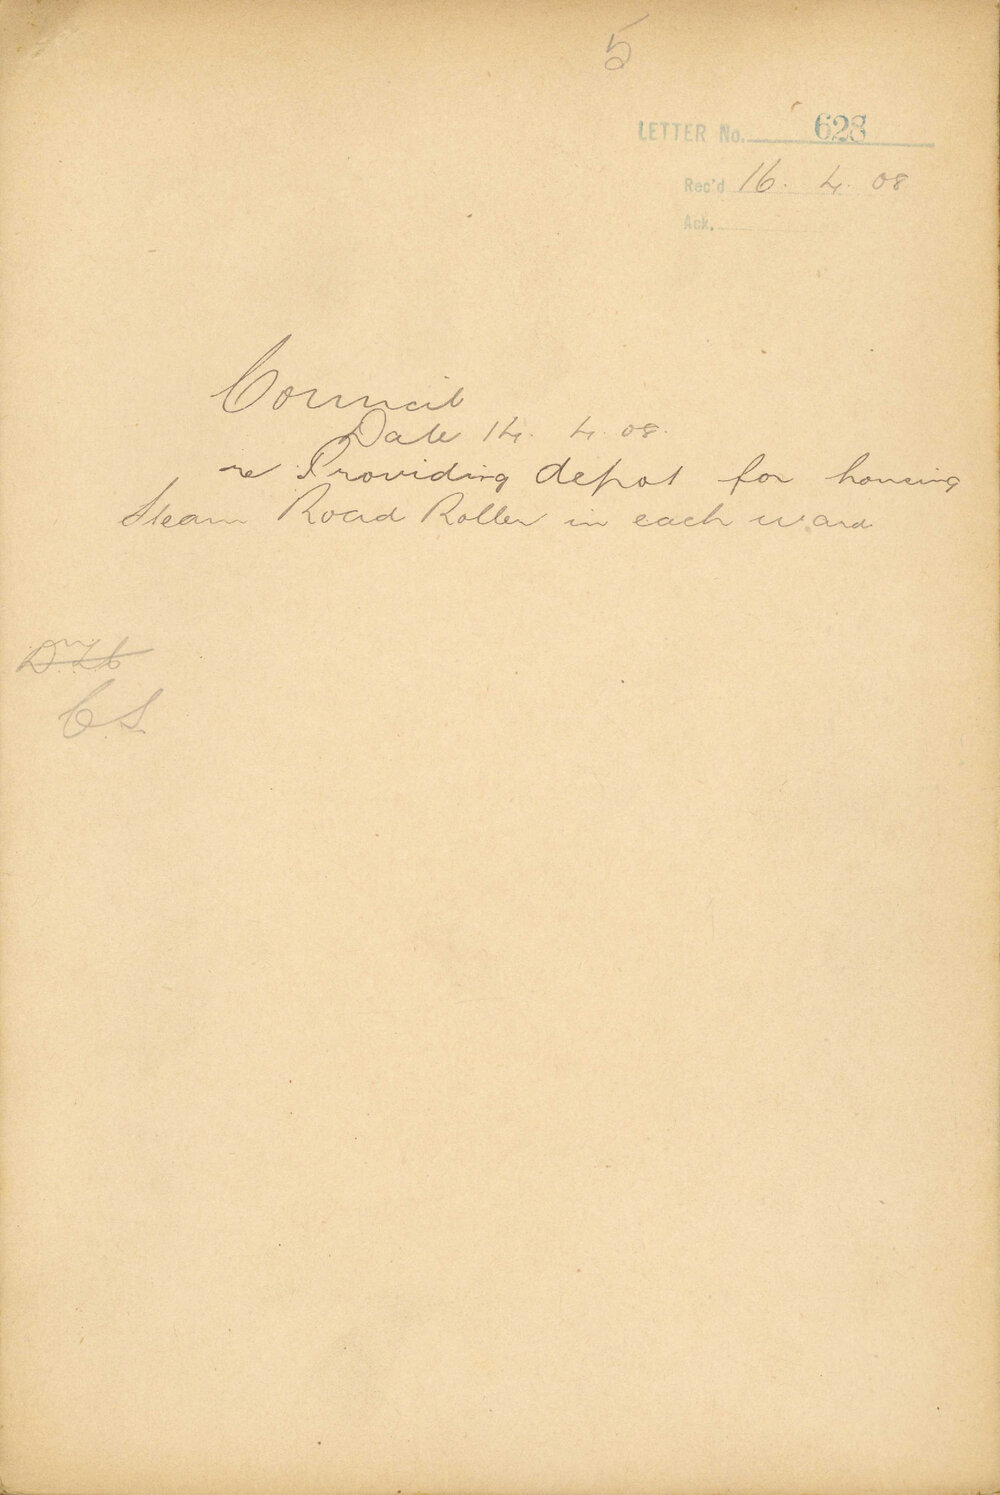 5
LETTER No. 628
Rec'd 16. 4. 08
Ack.
Council
Date 14. 4. 08.
re Providing depot for housing
Steam Road Roller in each ward
C.S.